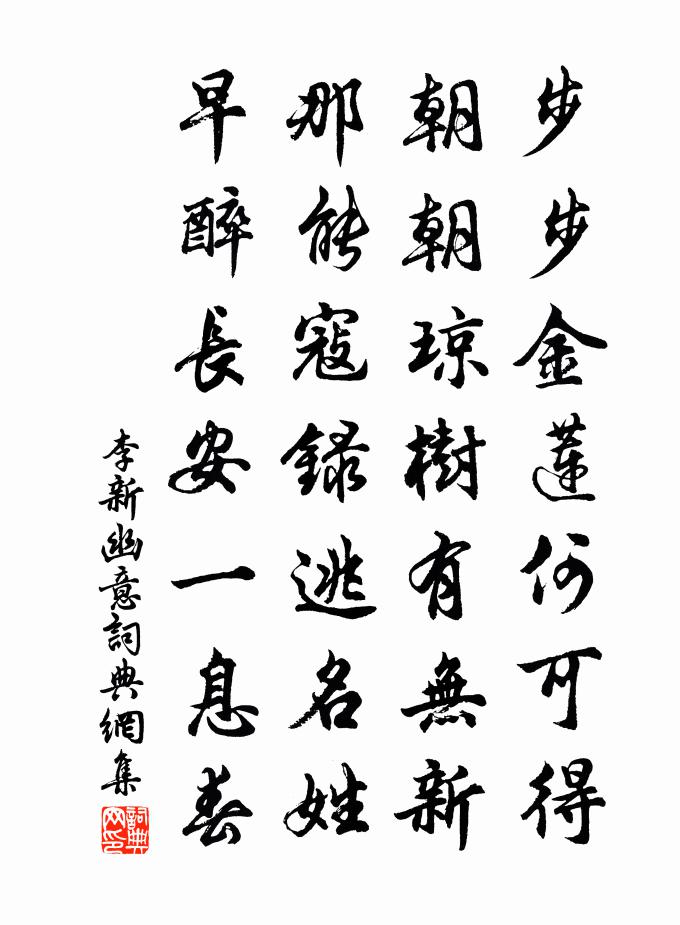 步步金蓮何可得
朝朝琼樹有無新
那能寇錄逃名姓
早醉長安一息春
李新幽意詞典網集
詞典网印